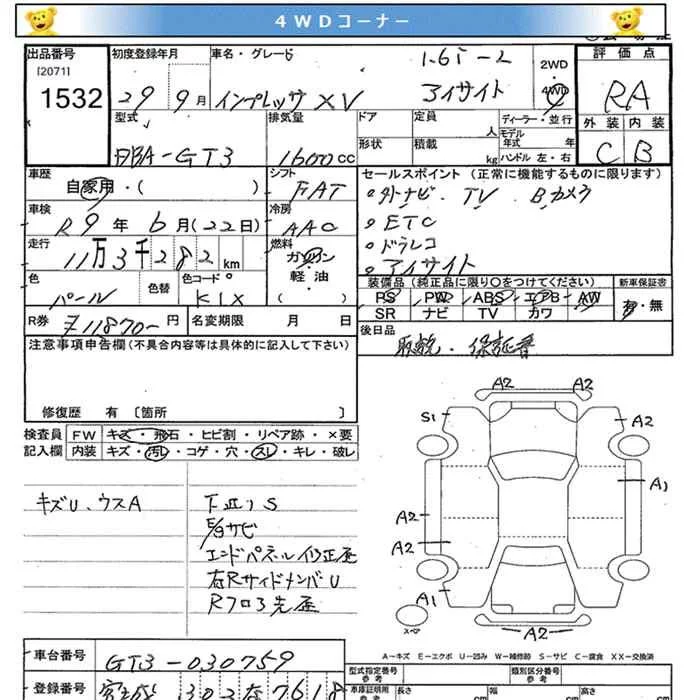 4WDコーナー
出品番号
[2071]
1532
初度登録年月
29 9月
車名・グレード
インプレッサ XV
1.6i-L
アイサイト
2WD
4WD
評価点
RA
外装 内装
C B
型式
DBA-GT3
排気量
1600cc
ドア 定員 人
形状 積載 kg
ディーラー・並行
モデル年式 年
ハンドル 左・右
車歴
自家用・( )
シフト
FAT
車検
R9年 6月(22日)
冷房
AAC
走行
11万3千282km
燃料
ガソリン
軽油
( )
色
パール
色替
色コード
K1X
R券
¥11870- 円
名変期限 月 日
セールスポイント (正常に機能するものに限ります)
・外ナビ・TV・Bカメラ
・ETC
・ドラレコ
・アイサイト
装備品(純正品に限り〇をつけてください)
PS PW ABS エアB AW
SR ナビ TV カワ
新車保証書
有・無
後日品
取説・保証書
注意事項申告欄(不具合内容等は具体的に記入して下さい)
修復歴 有 〔箇所 〕
検査員
記入欄
FW キズ・飛石・ヒビ割・リペア跡・×要
内装 キズ・汚れ・コゲ・穴・スレ・キレ・破レ
キズU、ウスA
下廻りS
E/gサビ
エンドパネル修正歴
右RサイドメンバーU
Rフロア先歴
A2 A2
S1 A2
A1
A2
A2
A1
A2
スペア
A-キズ E-エクボ U-凹み W-補修跡 S-サビ C-腐食 XX-交換済
車台番号
GT3-030759
登録番号
302 7618
型式指定番号
参考
類別区分番号
参考
車庫証明用
参考
長さ cm
幅 cm
高さ cm